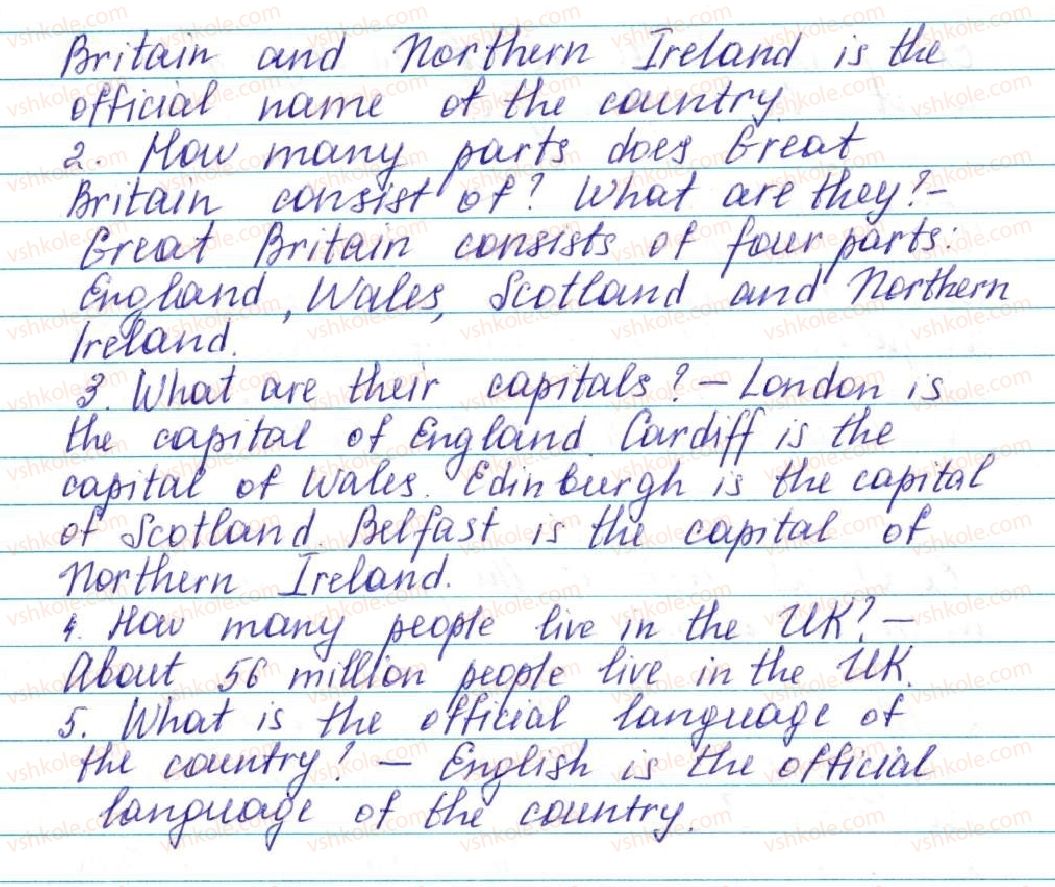 Britain and Northern Ireland is the
official name of the country
2. How many parts does Great
Britain consist of? What are they? –
Great Britain consists of four parts:
England, Wales, Scotland and Northern
Ireland.
3. What are their capitals? – London is
the capital of England. Cardiff is the
capital of Wales. Edinburgh is the capital
of Scotland. Belfast is the capital of
Northern Ireland.
4. How many people live in the UK? –
About 56 million people live in the UK.
5. What is the official language of
the country? – English is the official
language of the country.